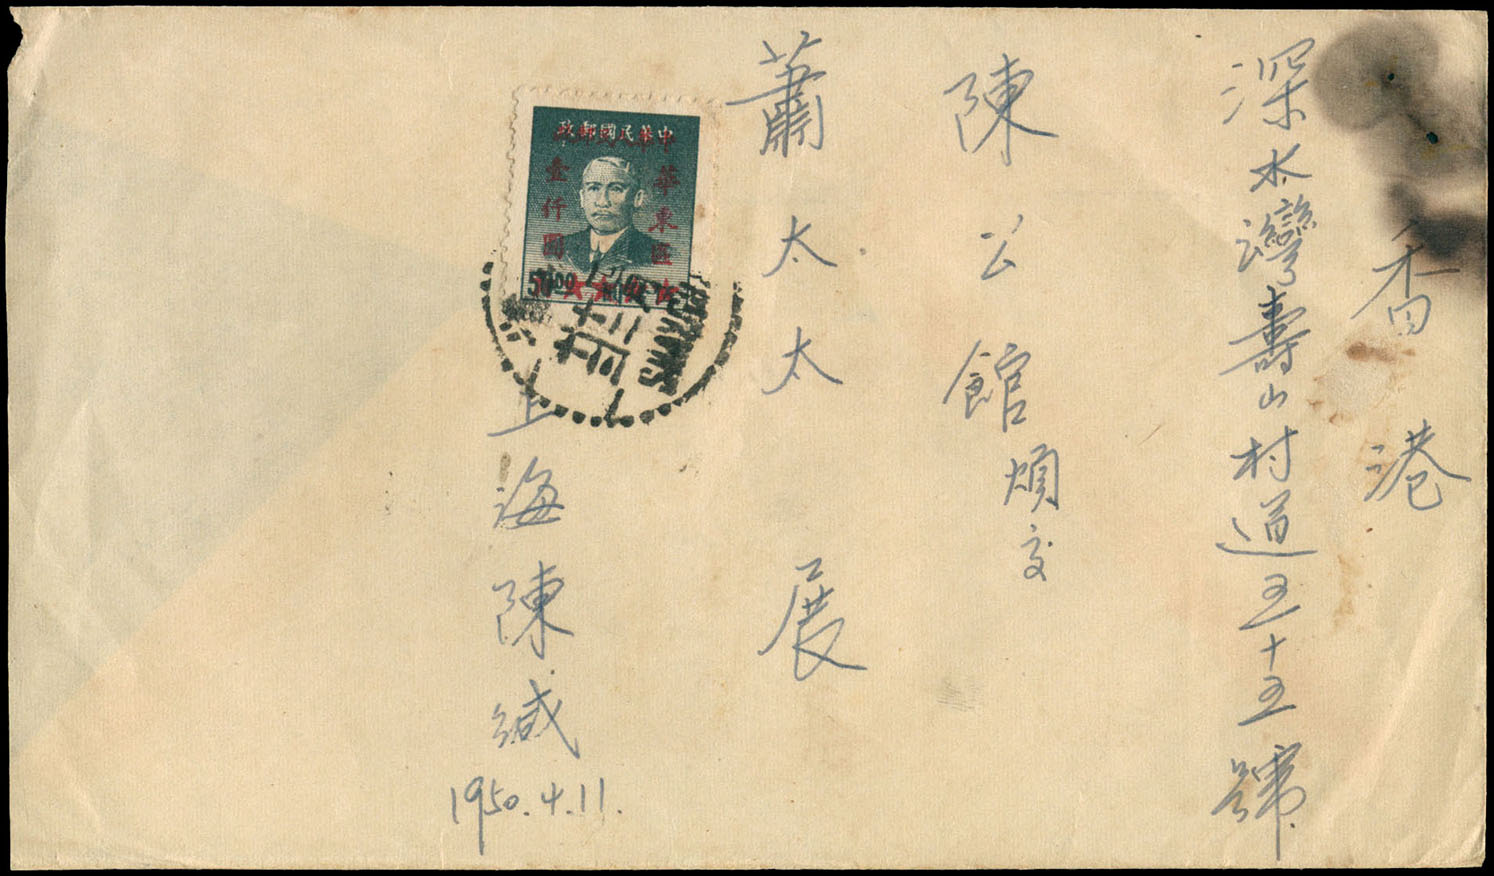 香港
深水灣壽山村道五十五號
陳公館煩交
蕭太太 展
上海陳緘
1950.4.11.
中華民國郵政
華東區
壹仟圓
5000